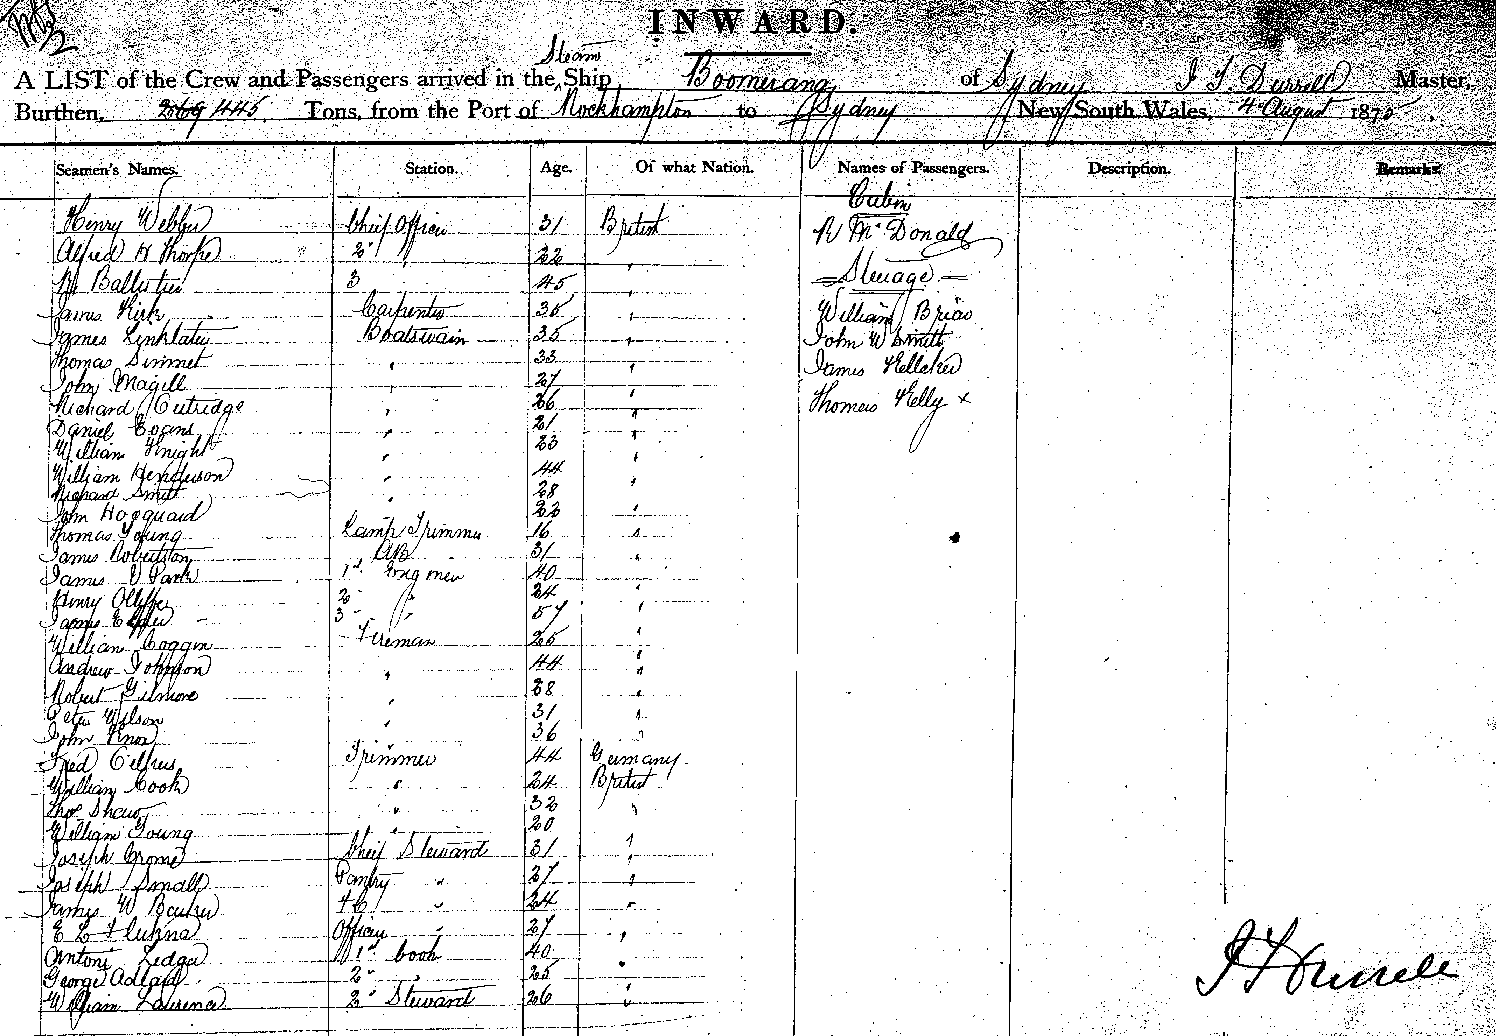 INWARD.
Steam
A LIST of the Crew and Passengers arrived in the Ship Boomerang of Sydney Master,
Burthen, 445 Tons, from the Port of Rockhampton to Sydney New South Wales, 4 August 187
Seamen's Names. Station. Age. Of what Nation. Names of Passengers. Description. Remarks.
Cabin
Henry Webber Chief Officer 31 British R McDonald
Alfred H Thorpe 2" 22 "
3 45 " Steerage
James Kirk Carpenter 35 " William
James Linklater Boatswain 35 " John W Smith
Thomas " 33 " James
John Magill " 27 "
Richard Gutridge " 26 " Thomas Kelly x
Daniel Evans " 21 "
William Knight " 23 "
William Henderson " 44 "
Richard Smith " 28
John Hocquard 22 "
Thomas Young Lamp Trimmer 16 "
James Robertson AB 31 "
James Park 1st Engineer 40 "
Henry 2" " 24 "
James 3" " 57 "
William Coggin Fireman 25 "
Andrew Johnson " 44 "
Robert Gilmore 28 "
Peter Wilson " 31 "
John Knox " 36 "
Fred Trimmer 44 Germany
William Cook " 24 British
Thos Shaw " 32 "
William Young " 20
Joseph Crome Chief Steward 31 "
Joseph Small Pantry " 27 "
James W Barker " 24 "
E L " 27 "
Antoni 1st Cook 40 "
George 2" " 25 "
William Lawrence 2" Steward 26 "